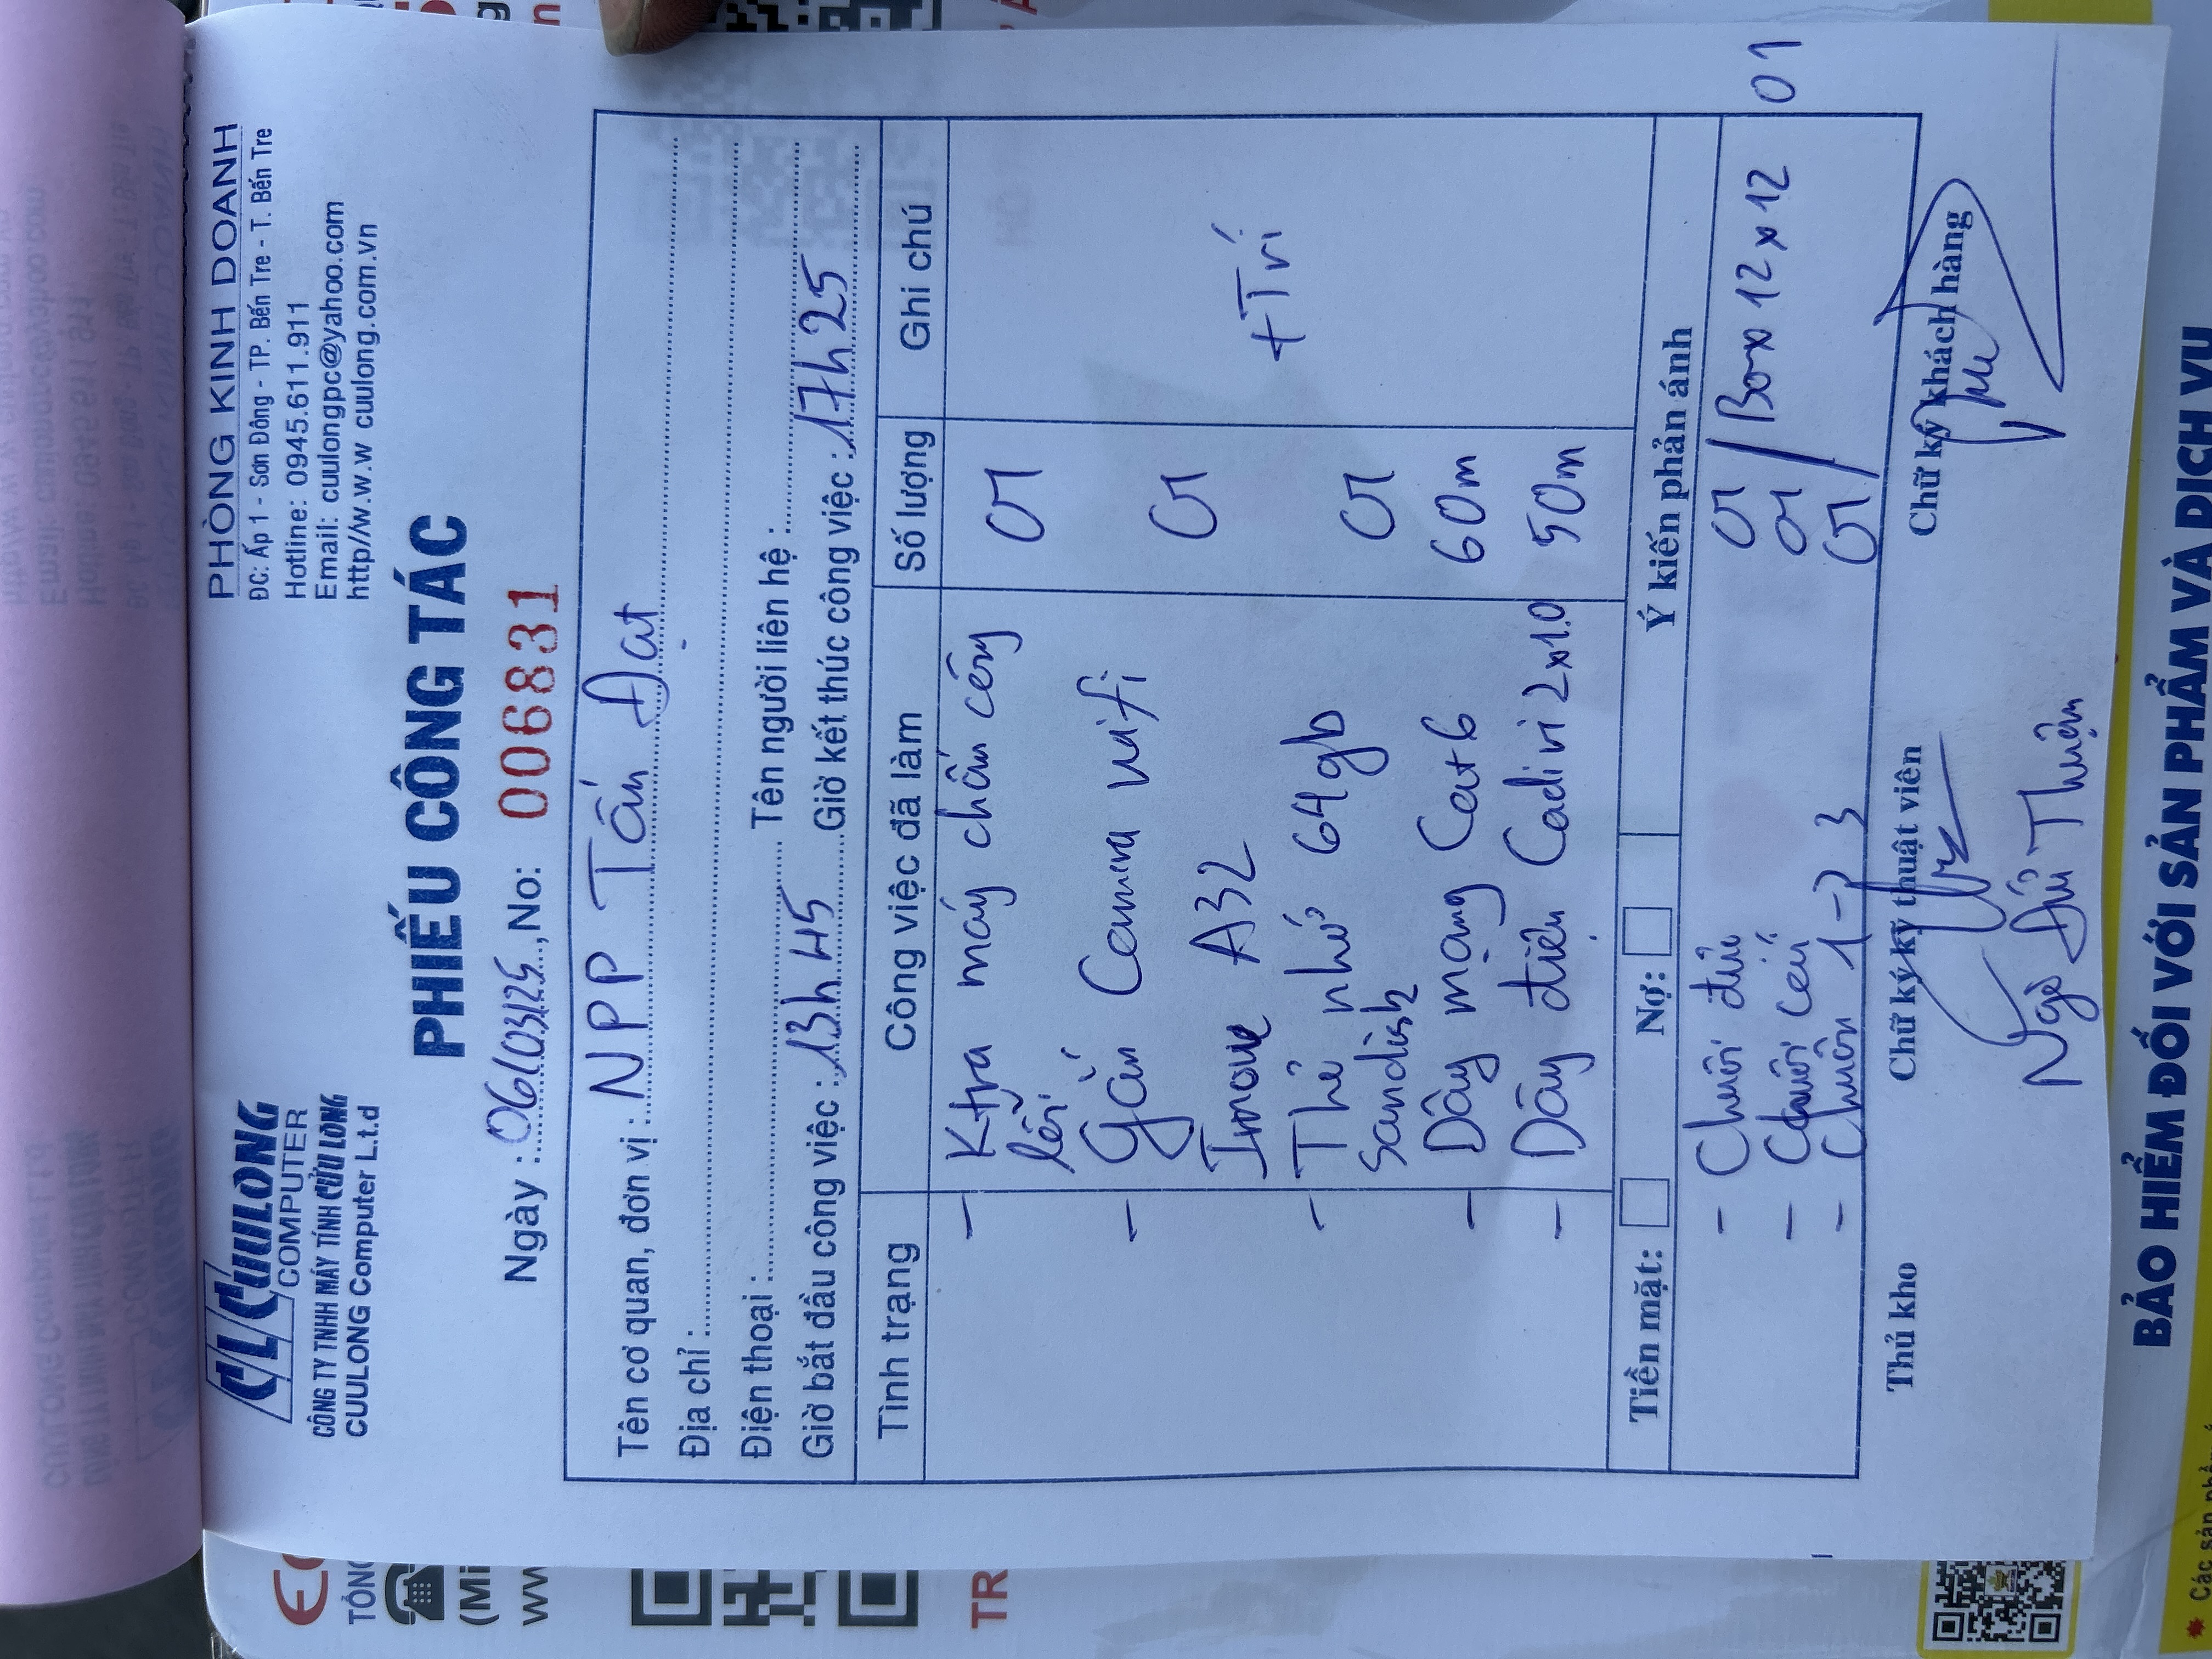 CLCUULONG
COMPUTER
CÔNG TY TNHH MÁY TÍNH CỬU LONG
CUULONG Computer L.t.d
PHÒNG KINH DOANH
ĐC: Ấp 1 - Sơn Đông - TP. Bến Tre - T. Bến Tre
Hotline: 0945.611.911
Email: cuulongpc@yahoo.com
http//w.w.w cuulong.com.vn
PHIẾU CÔNG TÁC
Ngày : 06/03/25, No: 006831
Tên cơ quan, đơn vị : NPP Tấn Đạt
Địa chỉ :
Điện thoại : Tên người liên hệ :
Giờ bắt đầu công việc : 13h45 Giờ kết thúc công việc : 17h25
Tình trạng Công việc đã làm Số lượng Ghi chú
- Ktra máy chấm công 01
lỗi
- Gắn Camera wifi 01
Imou A32 + Trí
- Thẻ nhớ 64gb 01
Sandisk
- Dây mạng Cat6 60m
- Dây điện Cadivi 2x1.0 50m
Tiền mặt: Nợ: Ý kiến phản ánh
- Chuôi đực 01
- Chuôi cái 01 / Box 12x12 01
- Chuôn 1->3 01
Thủ kho Chữ ký kỹ thuật viên Chữ ký khách hàng
Ngô Thuận
BẢO HIỂM ĐỐI VỚI SẢN PHẨM VÀ DỊCH VỤ